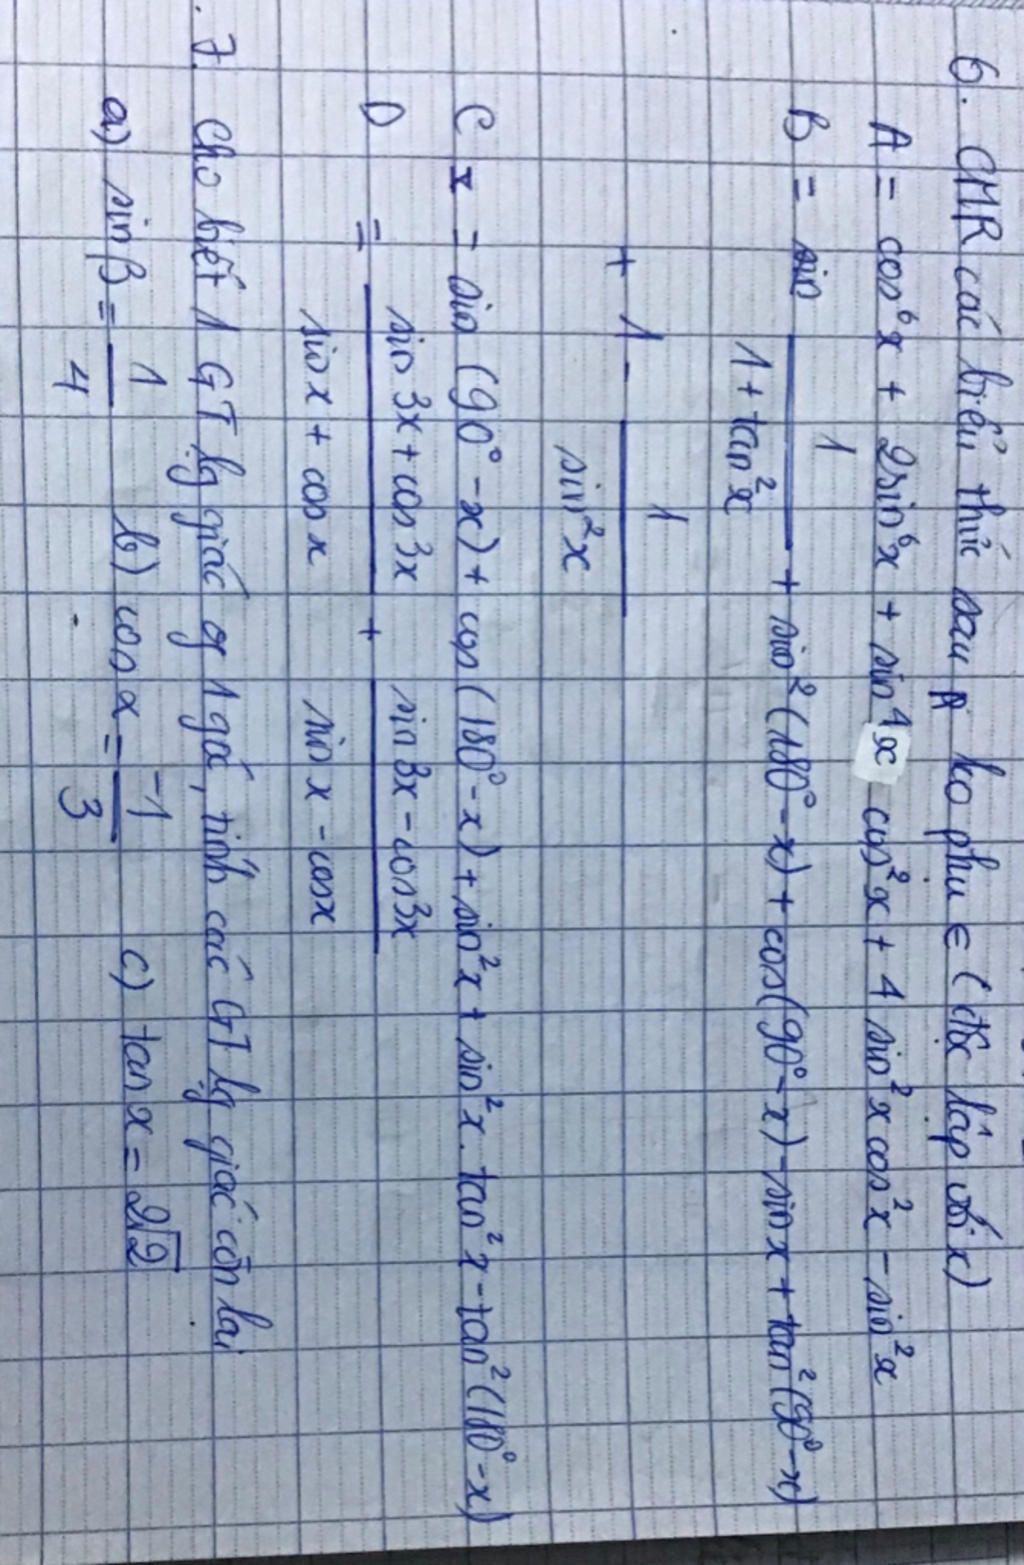 6. CMR các biểu thức sau ko phụ ∈ (độc lập với x)
A = cos⁶x + 2sin⁶x + sin⁴x cos²x + 4 sin²x cos²x - sin²x
B = 1/(1 + tan²x) + sin²(180° - x) + cos(90° - x) - sinx + tan²(90° - x)
+ 1 - 1/sin²x
C = sin (90° - x) + cos (180° - x) + sin²x + sin²x. tan²x - tan²(180° - x)
D = (sin³x + cos³x)/(sin x + cos x) + (sin³x - cos³x)/(sin x - cosx)
7. Cho biết 1 GT lg giác of 1 góc, tính các GT lg giác còn lại
a) sin β = 1/4 b) cos x = -1/3 c) tan x = 2√2